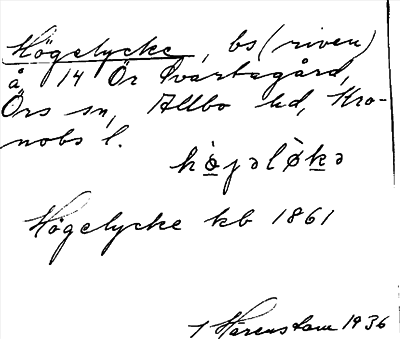 Högelycke, bs (riven)
å 14 Ör Svartagård,
Örs sn, Allbo hd, Kro-
nobs l.
hö̀jəlö̀kə
Högelycke kb 1861
Härenstam 1936